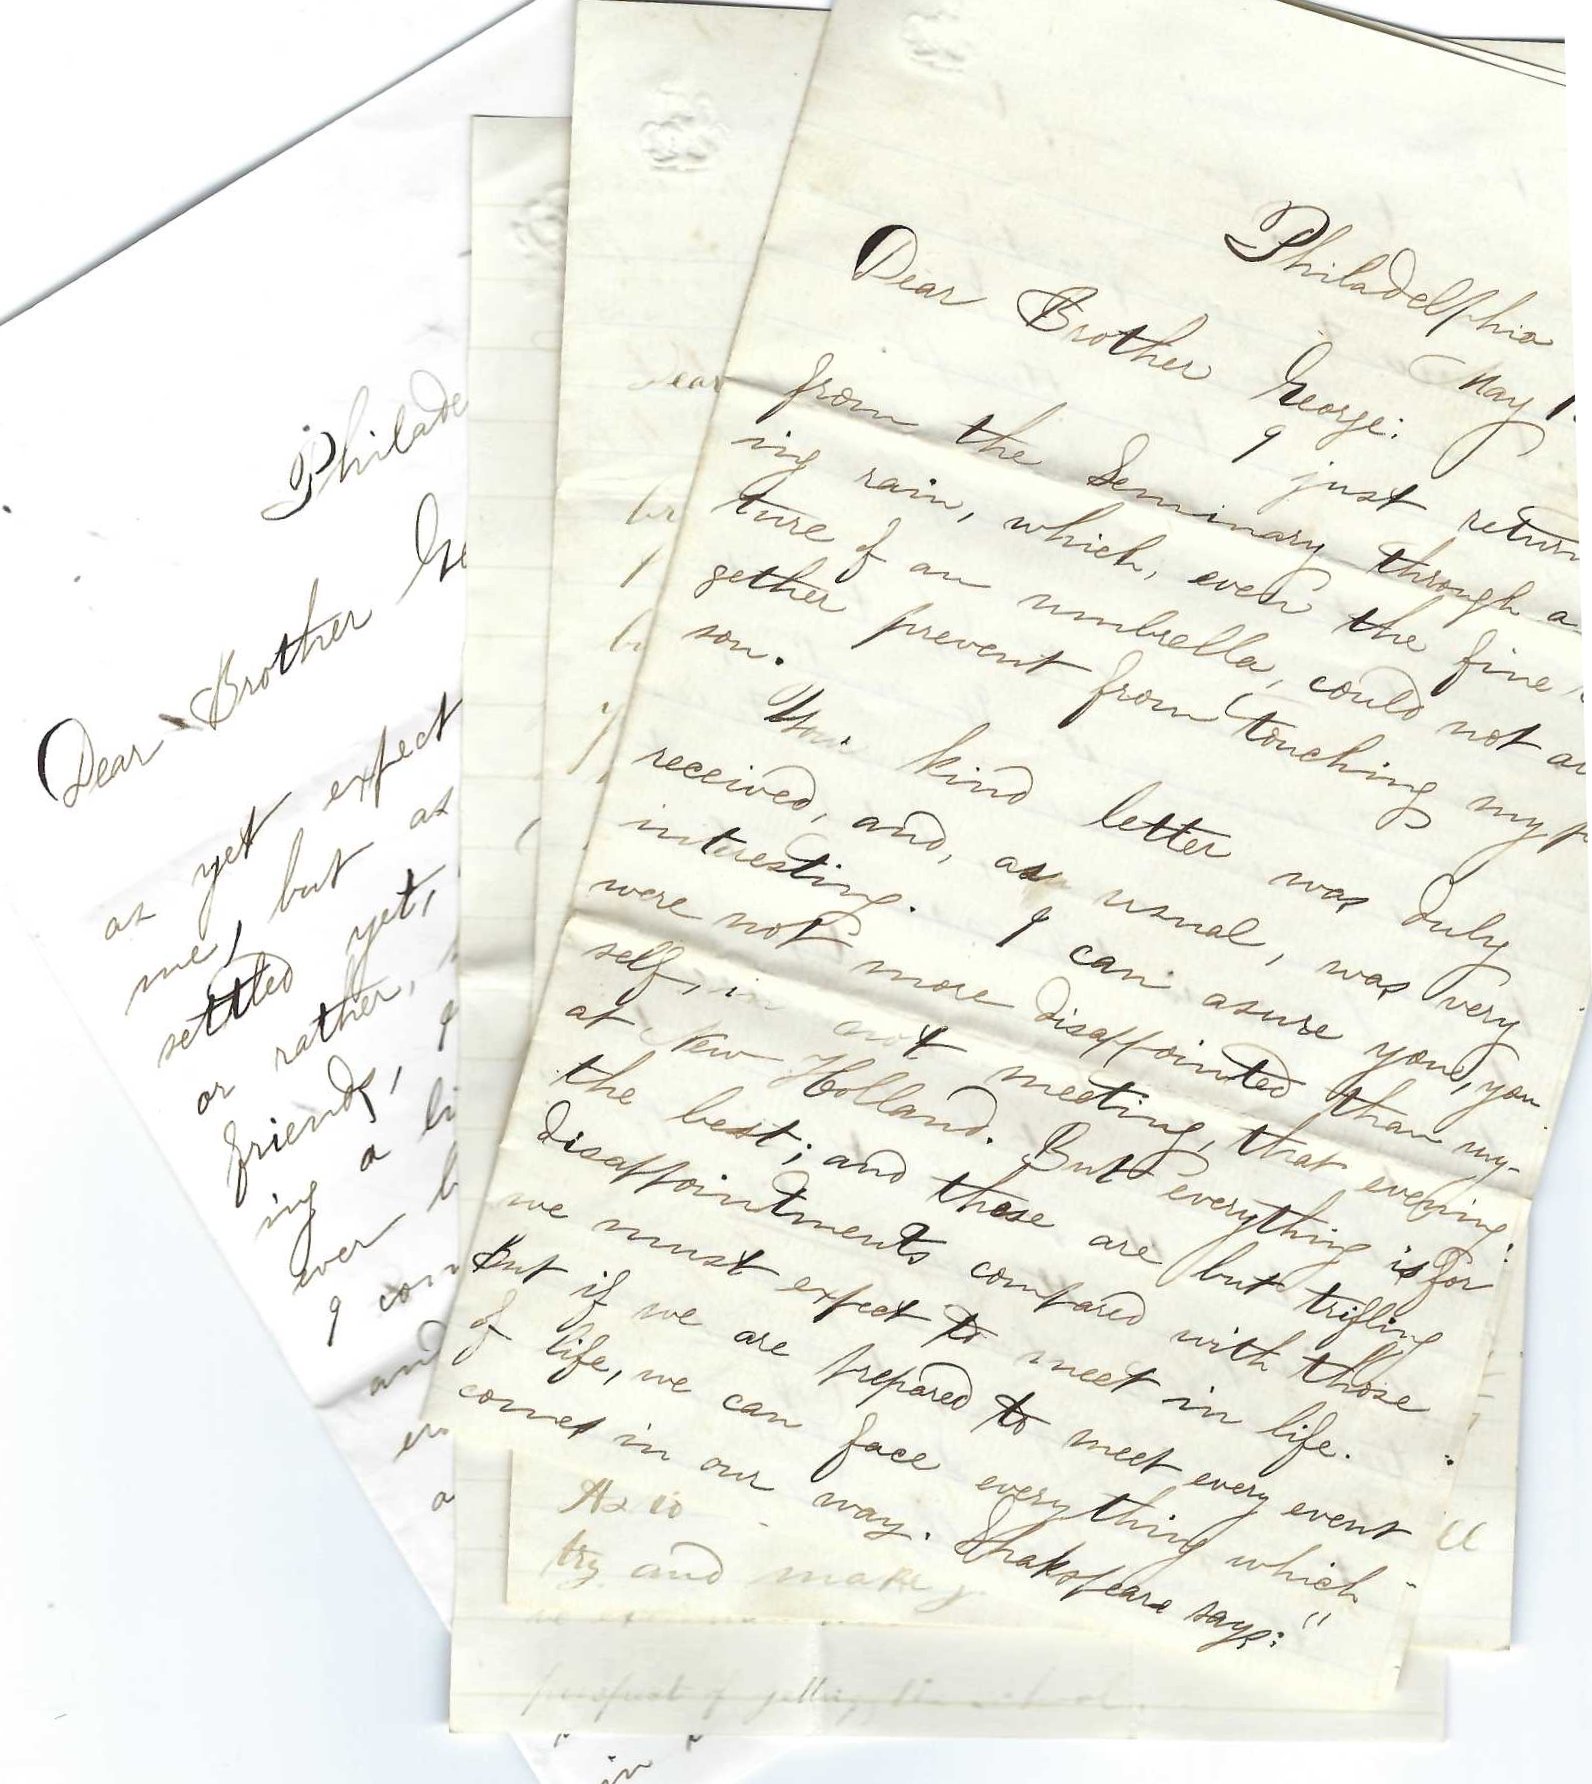 Philadelphia
May 1
Dear Brother George:
I just return
from the Seminary through a
ing rain, which, even the fine
ture of an umbrella, could not al
gether prevent from touching my pe
son.
Your kind letter was duly
received, and, as usual, was very
interesting. I can asure you, you
were not more disappointed than my-
self, in not meeting, that evening
at New Holland. But everything is for
the best; and these are but trifling
disappointments compared with those
we must expect to meet in life.
But if we are prepared to meet every event
of life, we can face everything which
comes in our way. Shakspeare says: "
Philade
Dear Brother Ge
as yet expect
me, but as
settled yet,
or rather,
friends, I
ing a li
ever b
I con
and
en
a
in
Dear
br
try and make
prospect of getting the school